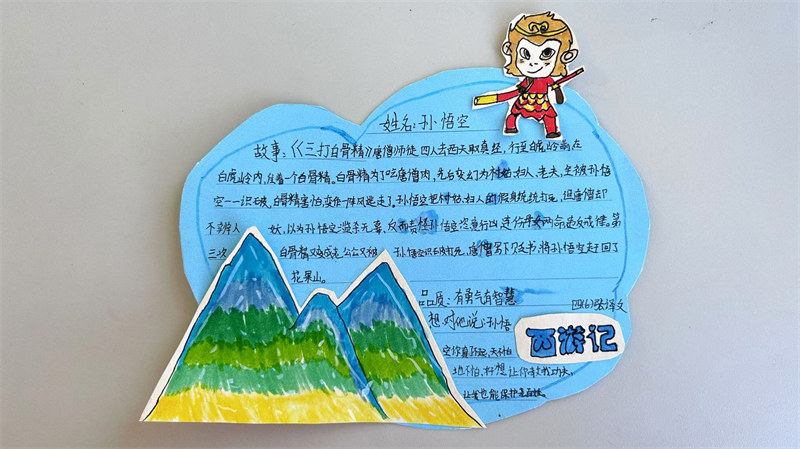 姓名：孙悟空
故事：《三打白骨精》唐僧师徒四人去西天取真经，行至白虎岭前在
白虎岭内，住着一个白骨精。白骨精为了吃唐僧肉，先后变幻为村姑、妇人、老夫，全被孙悟
空一一识破，白骨精害怕变作一阵风逃走了。孙悟空把村姑、妇人的假身统统打死，但唐僧却
不辨人妖，以为孙悟空滥杀无辜，反而责怪孙悟空恣意行凶连伤母女两命违反戒律。第
三次白骨精又变成老公公又被孙悟空识破打死，唐僧写下贬书，将孙悟空赶回了
花果山。
品质：有勇气有智慧
四(6)张泽文
想对他说：孙悟
空你真了不起，天不怕
地不怕，好想让你教我功夫，
让我也能保护
西游记